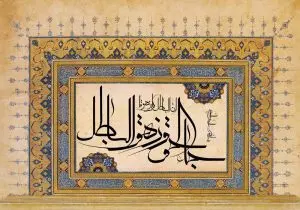 جاء الحق و زهق الباطل
ان الباطل کان زهوقا